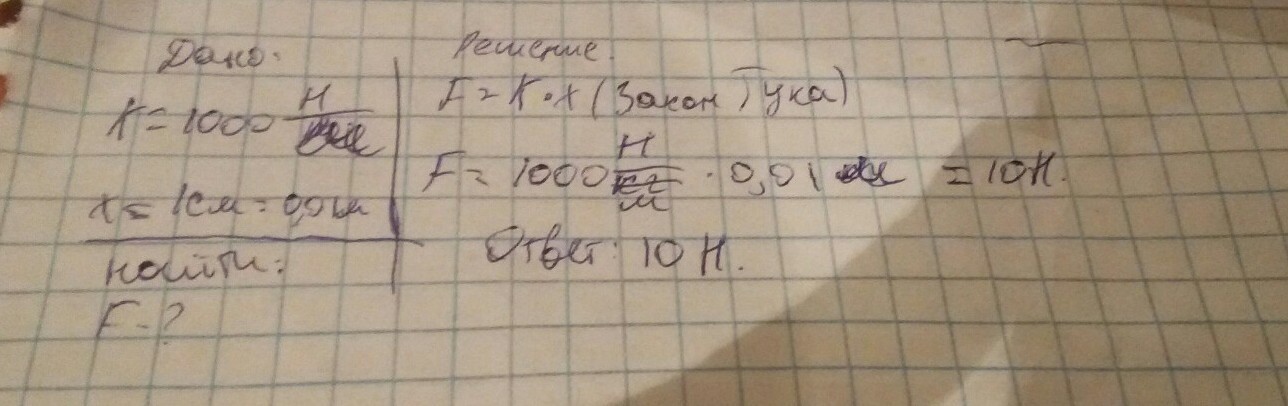 Дано:
K = 1000 Н/
x = 1см = 0,01м
Найти:
F - ?
Решение.
F = K · x (Закон Гука)
F = 1000 Н/м · 0,01 = 10Н.
Ответ: 10 Н.